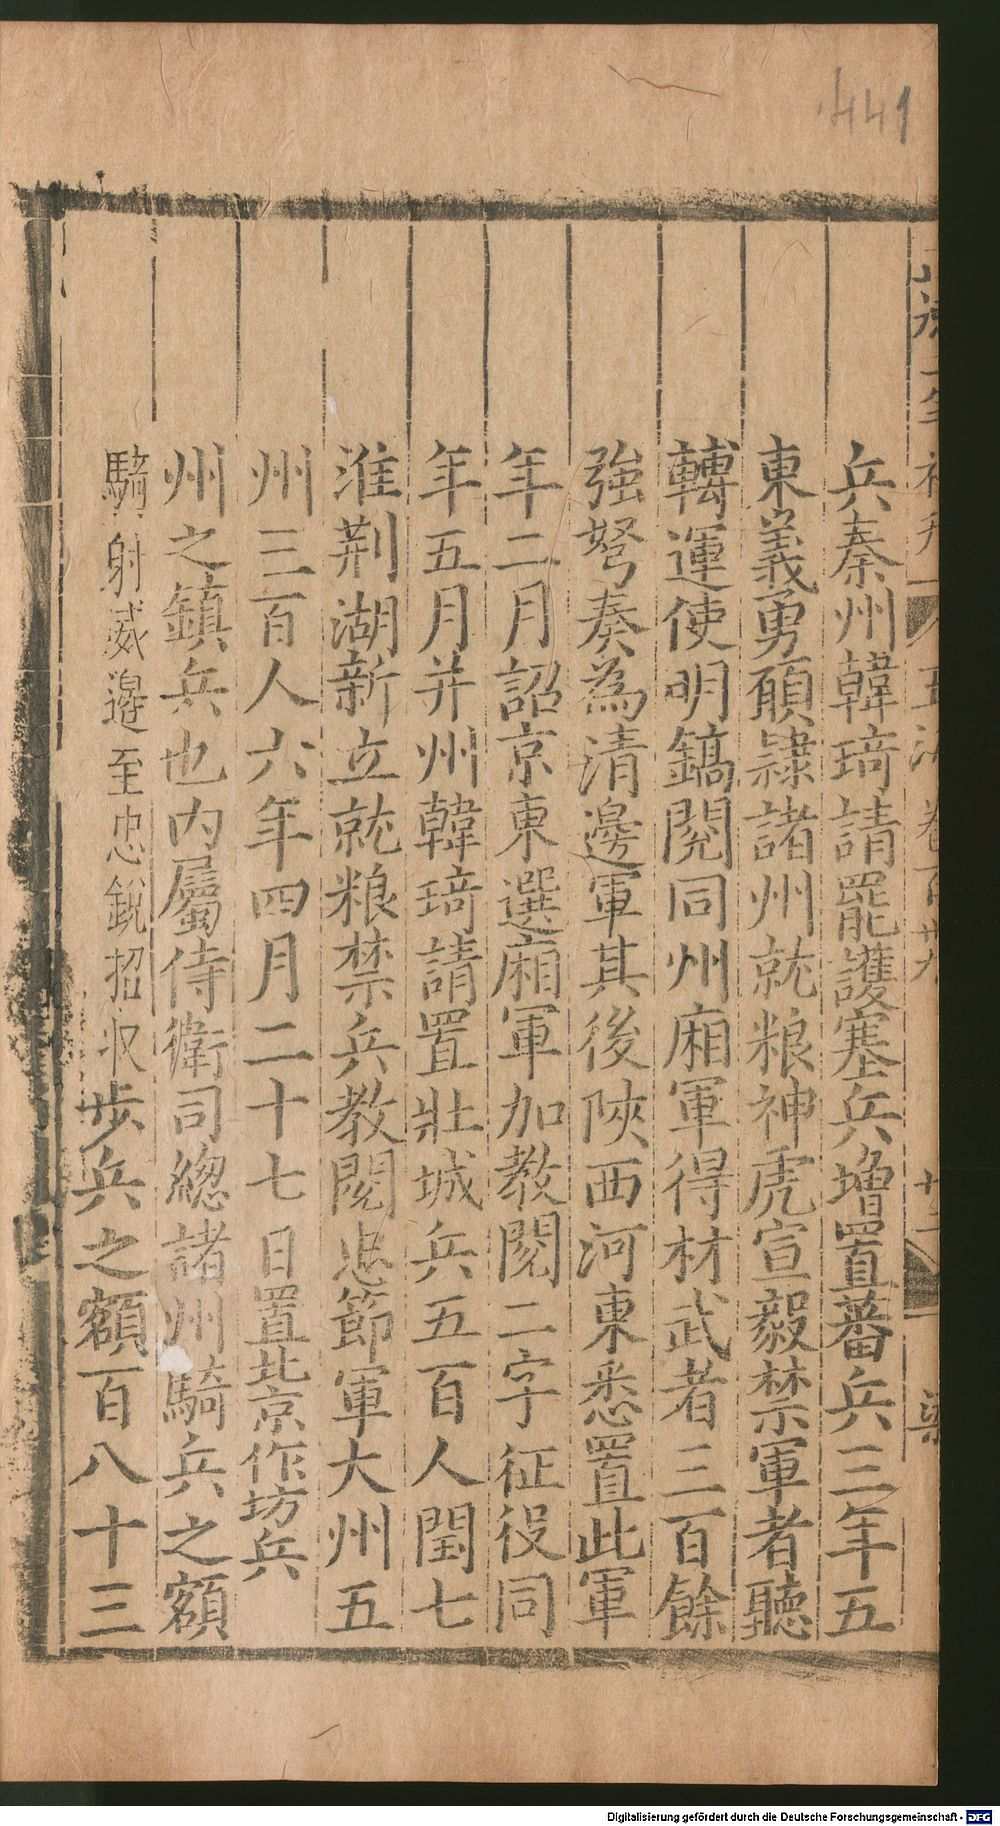 441
玉海 卷百卅九
兵秦州韓琦請罷護塞兵增置蕃兵三年五
東義勇願隷諸州就粮神虎宣毅禁軍者聽
轉運使明鎬閱同州廂軍得材武者三百餘
強弩奏為清邊軍其後陝西河東悉置此軍
年二月詔京東選廂軍加教閱二字征役同
年五月并州韓琦請置壯城兵五百人閏七
淮荆湖新立就粮禁兵教閱忠節軍大州五
州三百人六年四月二十七日置北京作坊兵
州之鎮兵也內屬侍衛司緫諸州騎兵之額
騎射威邊至忠銳招收步兵之額百八十三
Digitalisierung gefördert durch die Deutsche Forschungsgemeinschaft - DFG